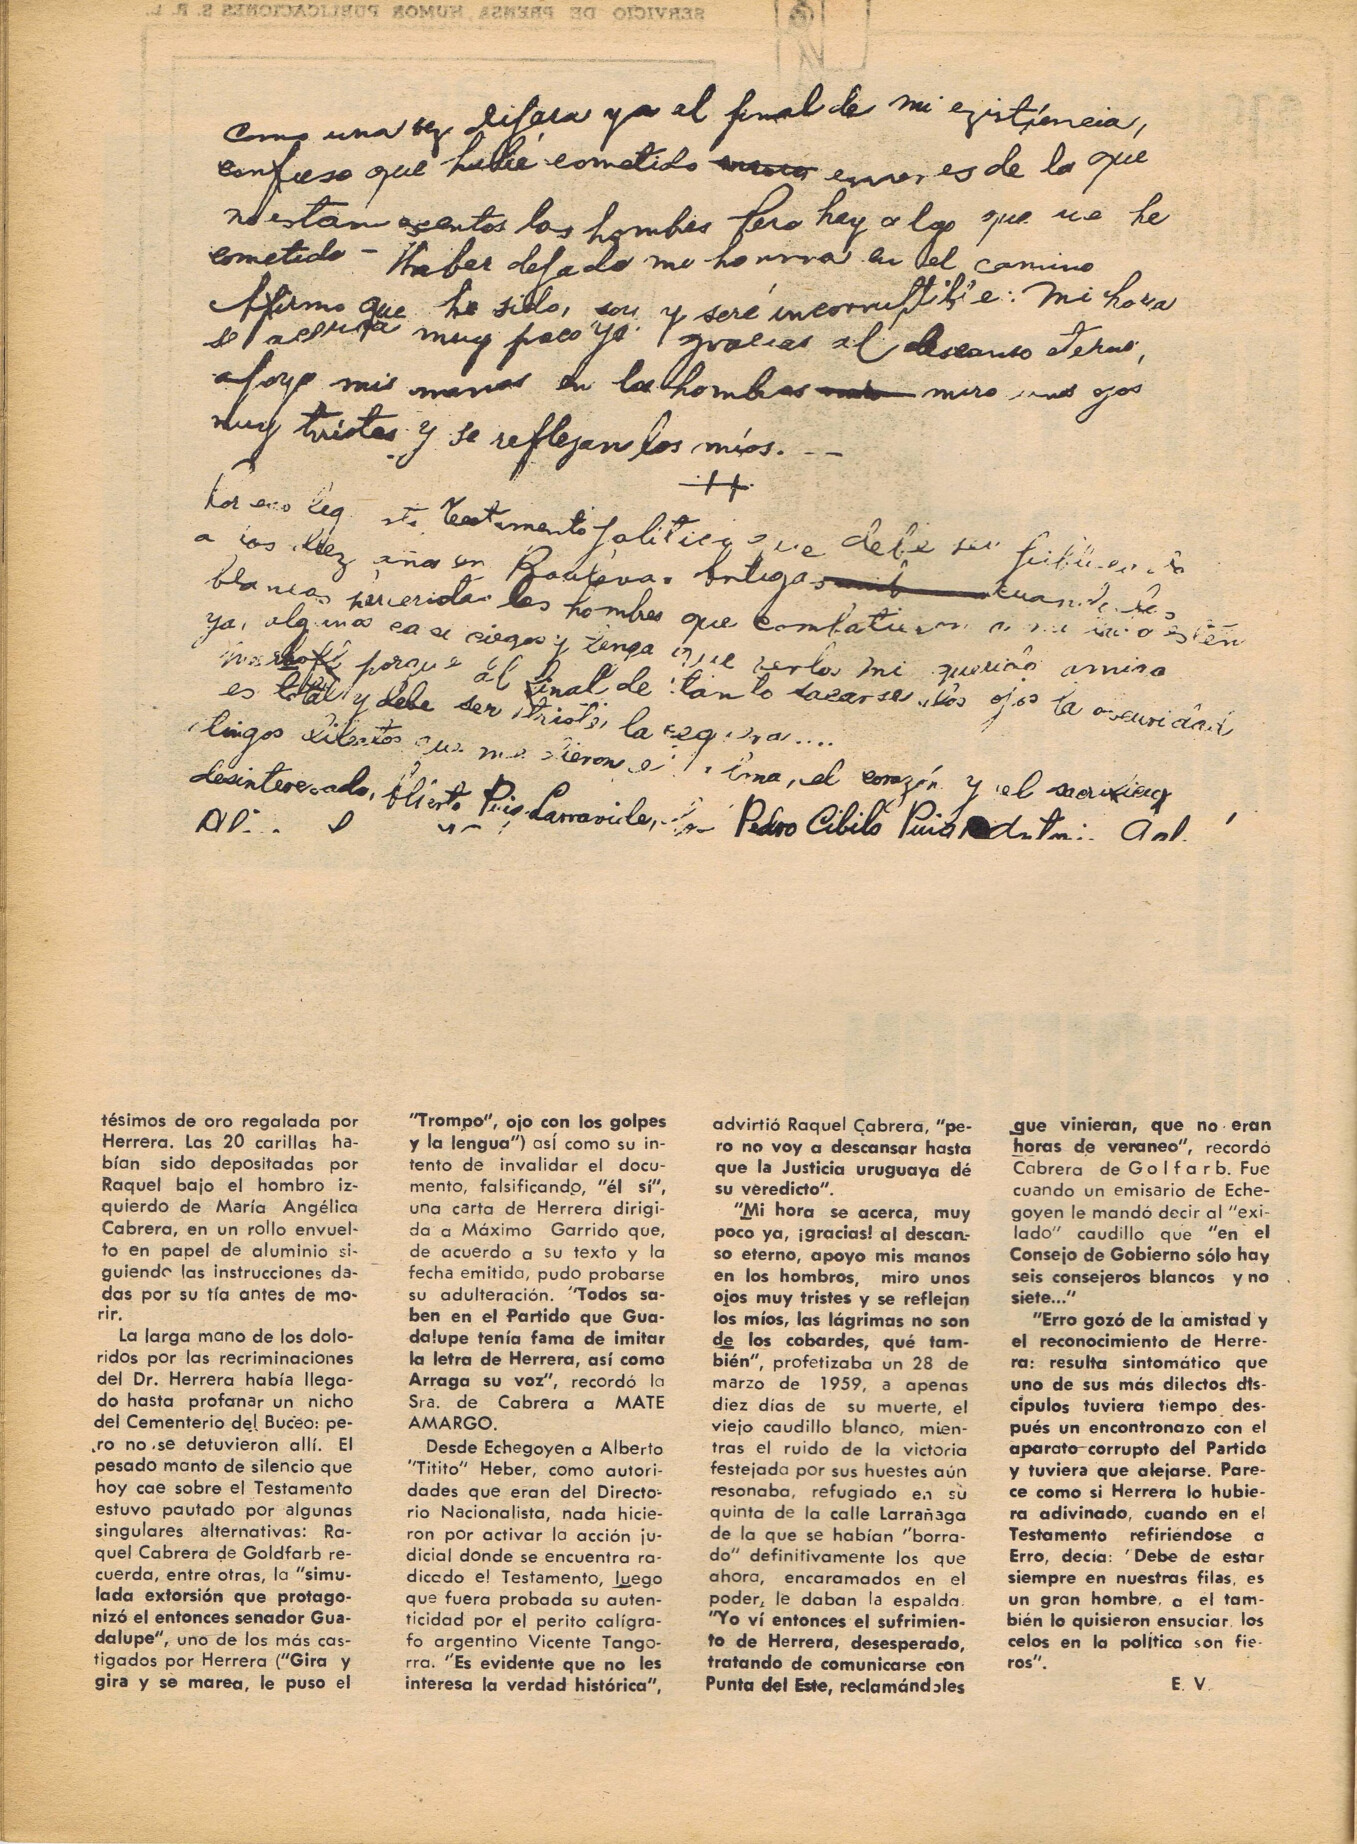 como una vez dijera ya al final de mi existíencia,
confieso que habré cometido errores de lo que
no están exentos los hombres Pero hay algo que no he
cometido - Haber dejado mi honrra en el camino
Afirmo que he sido, soy y seré incorruptible: Mi hora
se acerca muy poco ya gracias al descanso eterno,
apoyo mis manos en los hombros miro unos ojos
muy tristes y se reflejan los míos. --
Por eso testamento político que debe ser
a los diez años en Artigas cuando
blancos los hombres que combatieron estén
ya, algunos casi ciegos y tenga que verlos mi querido amigo
porque al final de tanto sacarse los ojos la oscuridad
es total y debe ser triste, la ceguera....
que me dieron el alma, el corazón y el sacrificio
desinteresado, Alberto Puig Larravide, Pedro Cibils Puig
tésimos de oro regalada por
Herrera. Las 20 carillas ha-
bían sido depositadas por
Raquel bajo el hombro iz-
quierdo de María Angélica
Cabrera, en un rollo envuel-
to en papel de aluminio si-
guiendo las instrucciones da-
das por su tía antes de mo-
rir.
La larga mano de los dolo-
ridos por las recriminaciones
del Dr. Herrera había llega-
do hasta profanar un nicho
del Cementerio del Buceo: pe-
ro no se detuvieron allí. El
pesado manto de silencio que
hoy cae sobre el Testamento
estuvo pautado por algunas
singulares alternativas: Ra-
quel Cabrera de Goldfarb re-
cuerda, entre otras, la "simu-
lada extorsión que protago-
nizó el entonces senador Gua-
dalupe", uno de los más cas-
tigados por Herrera ("Gira y
gira y se marea, le puso el
"Trompo", ojo con los golpes
y la lengua") así como su in-
tento de invalidar el docu-
mento, falsificando, "él sí",
una carta de Herrera dirigi-
da a Máximo Garrido que,
de acuerdo a su texto y la
fecha emitida, pudo probarse
su adulteración. "Todos sa-
ben en el Partido que Gua-
dalupe tenía fama de imitar
la letra de Herrera, así como
Arraga su voz", recordó la
Sra. de Cabrera a MATE
AMARGO.
Desde Echegoyen a Alberto
"Titito" Heber, como autori-
dades que eran del Directo-
rio Nacionalista, nada hicie-
ron por activar la acción ju-
dicial donde se encuentra ra-
dicado el Testamento, luego
que fuera probada su auten-
ticidad por el perito calígra-
fo argentino Vicente Tango-
rra. "Es evidente que no les
interesa la verdad histórica",
advirtió Raquel Cabrera, "pe-
ro no voy a descansar hasta
que la Justicia uruguaya dé
su veredicto".
"Mi hora se acerca, muy
poco ya, ¡gracias! al descan-
so eterno, apoyo mis manos
en los hombros, miro unos
ojos muy tristes y se reflejan
los míos, las lágrimas no son
de los cobardes, qué tam-
bién", profetizaba un 28 de
marzo de 1959, a apenas
diez días de su muerte, el
viejo caudillo blanco, mien-
tras el ruido de la victoria
festejada por sus huestes aún
resonaba, refugiado en su
quinta de la calle Larrañaga
de la que se habían "borra-
do" definitivamente los que
ahora, encaramados en el
poder, le daban la espalda.
"Yo ví entonces el sufrimien-
to de Herrera, desesperado,
tratando de comunicarse con
Punta del Este, reclamándoles
que vinieran, que no eran
horas de veraneo", recordó
Cabrera de Golfarb. Fue
cuando un emisario de Eche-
goyen le mandó decir al "exi-
lado" caudillo que "en el
Consejo de Gobierno sólo hay
seis consejeros blancos y no
siete..."
"Erro gozó de la amistad y
el reconocimiento de Herre-
ra: resulta sintomático que
uno de sus más dilectos dis-
cípulos tuviera tiempo des-
pués un encontronazo con el
aparato corrupto del Partido
y tuviera que alejarse. Pare-
ce como si Herrera lo hubie-
ra adivinado, cuando en el
Testamento refiriéndose a
Erro, decía: 'Debe de estar
siempre en nuestras filas, es
un gran hombre, a él tam-
bién lo quisieron ensuciar, los
celos en la política son fie-
ros".
E. V.